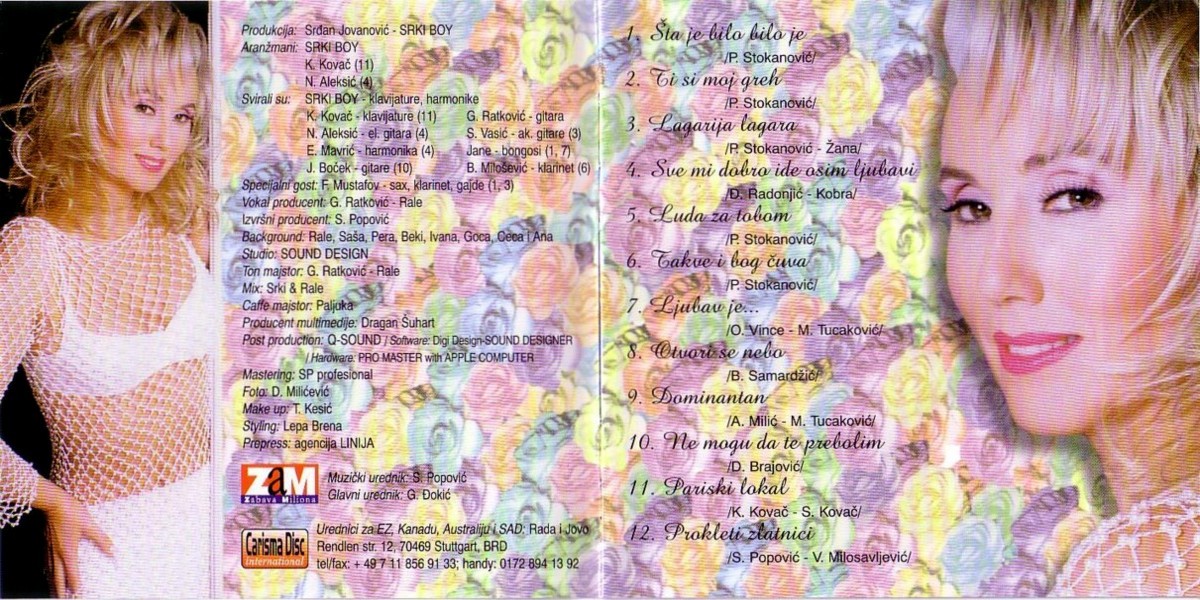 Produkcija: Srđan Jovanović - SRKI BOY
Aranžmani: SRKI BOY
K. Kovač (11)
N. Aleksić (4)
Svirali su: SRKI BOY - klavijature, harmonike
K. Kovač - klavijature (11) G. Ratković - gitara
N. Aleksić - el. gitara (4) S. Vasić - ak. gitare (3)
E. Mavrić - harmonika (4) Jane - bongosi (1, 7)
J. Boček - gitare (10) B. Milošević - klarinet (6)
Specijalni gost: F. Mustafov - sax, klarinet, gajde (1, 3)
Vokal producent: G. Ratković - Rale
Izvršni producent: S. Popović
Background: Rale, Saša, Pera, Beki, Ivana, Goca, Ceca i Ana
Studio: SOUND DESIGN
Ton majstor: G. Ratković - Rale
Mix: Srki & Rale
Caffe majstor: Paljuka
Producent multimedije: Dragan Šuhart
Post production: Q-SOUND / Software: Digi Design-SOUND DESIGNER
/ Hardware: PRO MASTER with APPLE COMPUTER
Mastering: SP profesional
Foto: D. Milićević
Make up: T. Kesić
Styling: Lepa Brena
Prepress: agencija LINIJA
ZaM
Zabava Miliona
Muzički urednik: S. Popović
Glavni urednik: G. Đokić
Carisma Disc
international
Urednici za EZ, Kanadu, Australiju i SAD: Rada i Jovo
Rendlen str. 12, 70469 Stuttgart, BRD
tel/fax: + 49 7 11 856 91 33; handy: 0172 894 13 92
1. Šta je bilo bilo je
/P. Stokanović/
2. Ti si moj greh
/P. Stokanović/
3. Lagarija lagara
/P. Stokanović - Žana/
4. Sve mi dobro ide osim ljubavi
/D. Radonjić - Kobra/
5. Luda za tobom
/P. Stokanović/
6. Takve i bog čuva
/P. Stokanović/
7. Ljubav je...
/O. Vince - M. Tucaković/
8. Otvori se nebo
/B. Samardžić/
9. Dominantan
/A. Milić - M. Tucaković/
10. Ne mogu da te prebolim
/D. Brajović/
11. Pariski lokal
/K. Kovač - S. Kovač/
12. Prokleti zlatnici
/S. Popović - V. Milosavljević/